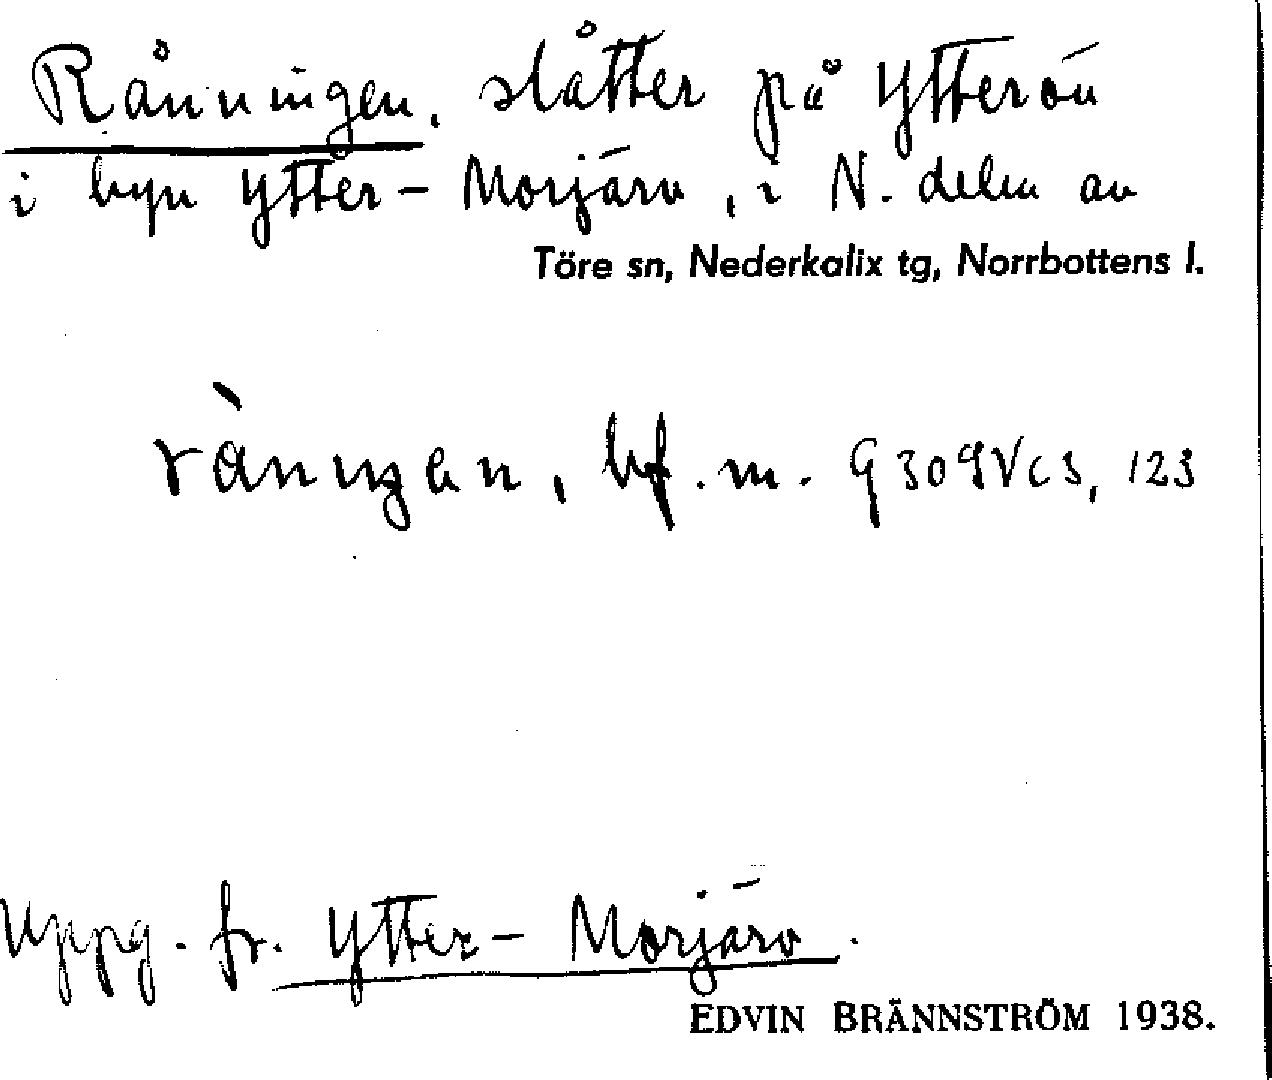 Rånningen, slåtter på Ytterön
i byn Ytter-Morjärv, i N. delen av
Töre sn, Nederkalix tg, Norrbottens l.
bf. m.
Uppg. fr. Ytter-Morjärv.
EDVIN BRÄNNSTRÖM 1938.